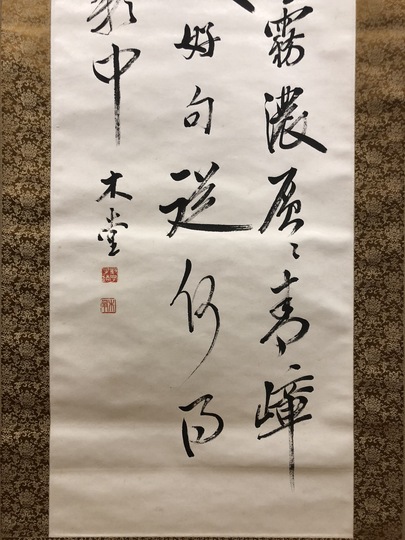 霧濃層々青嶂
好句從何得
中
木堂